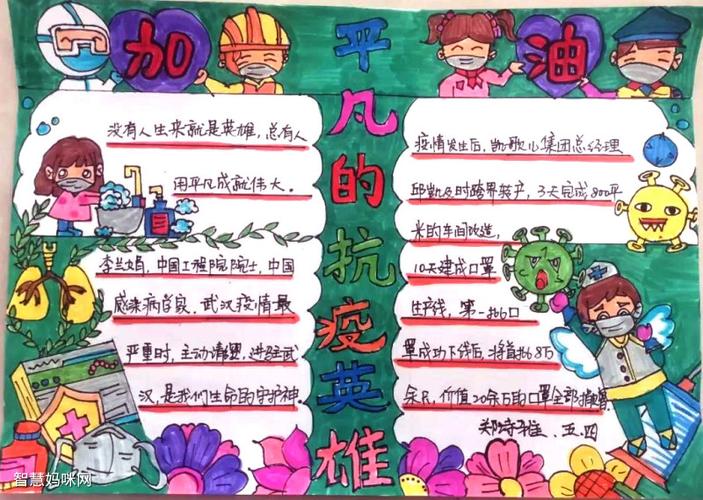 加油
平凡的抗疫英雄
没有人生来就是英雄，总有人
用平凡成就伟大。
李兰娟，中国工程院院士，中国
感染病学家。武汉疫情最
严重时，主动请缨，进驻武
汉，是我们生命的守护神。
疫情发生后，凯歌儿集团总经理
邱凯及时跨界转产，3天完成800平
米的车间改造，
10天建成口罩
生产线，第一批口
罩成功下线后，将首批6.8万
余只，价值20余万的口罩全部捐赠。
五.四
智慧妈咪网